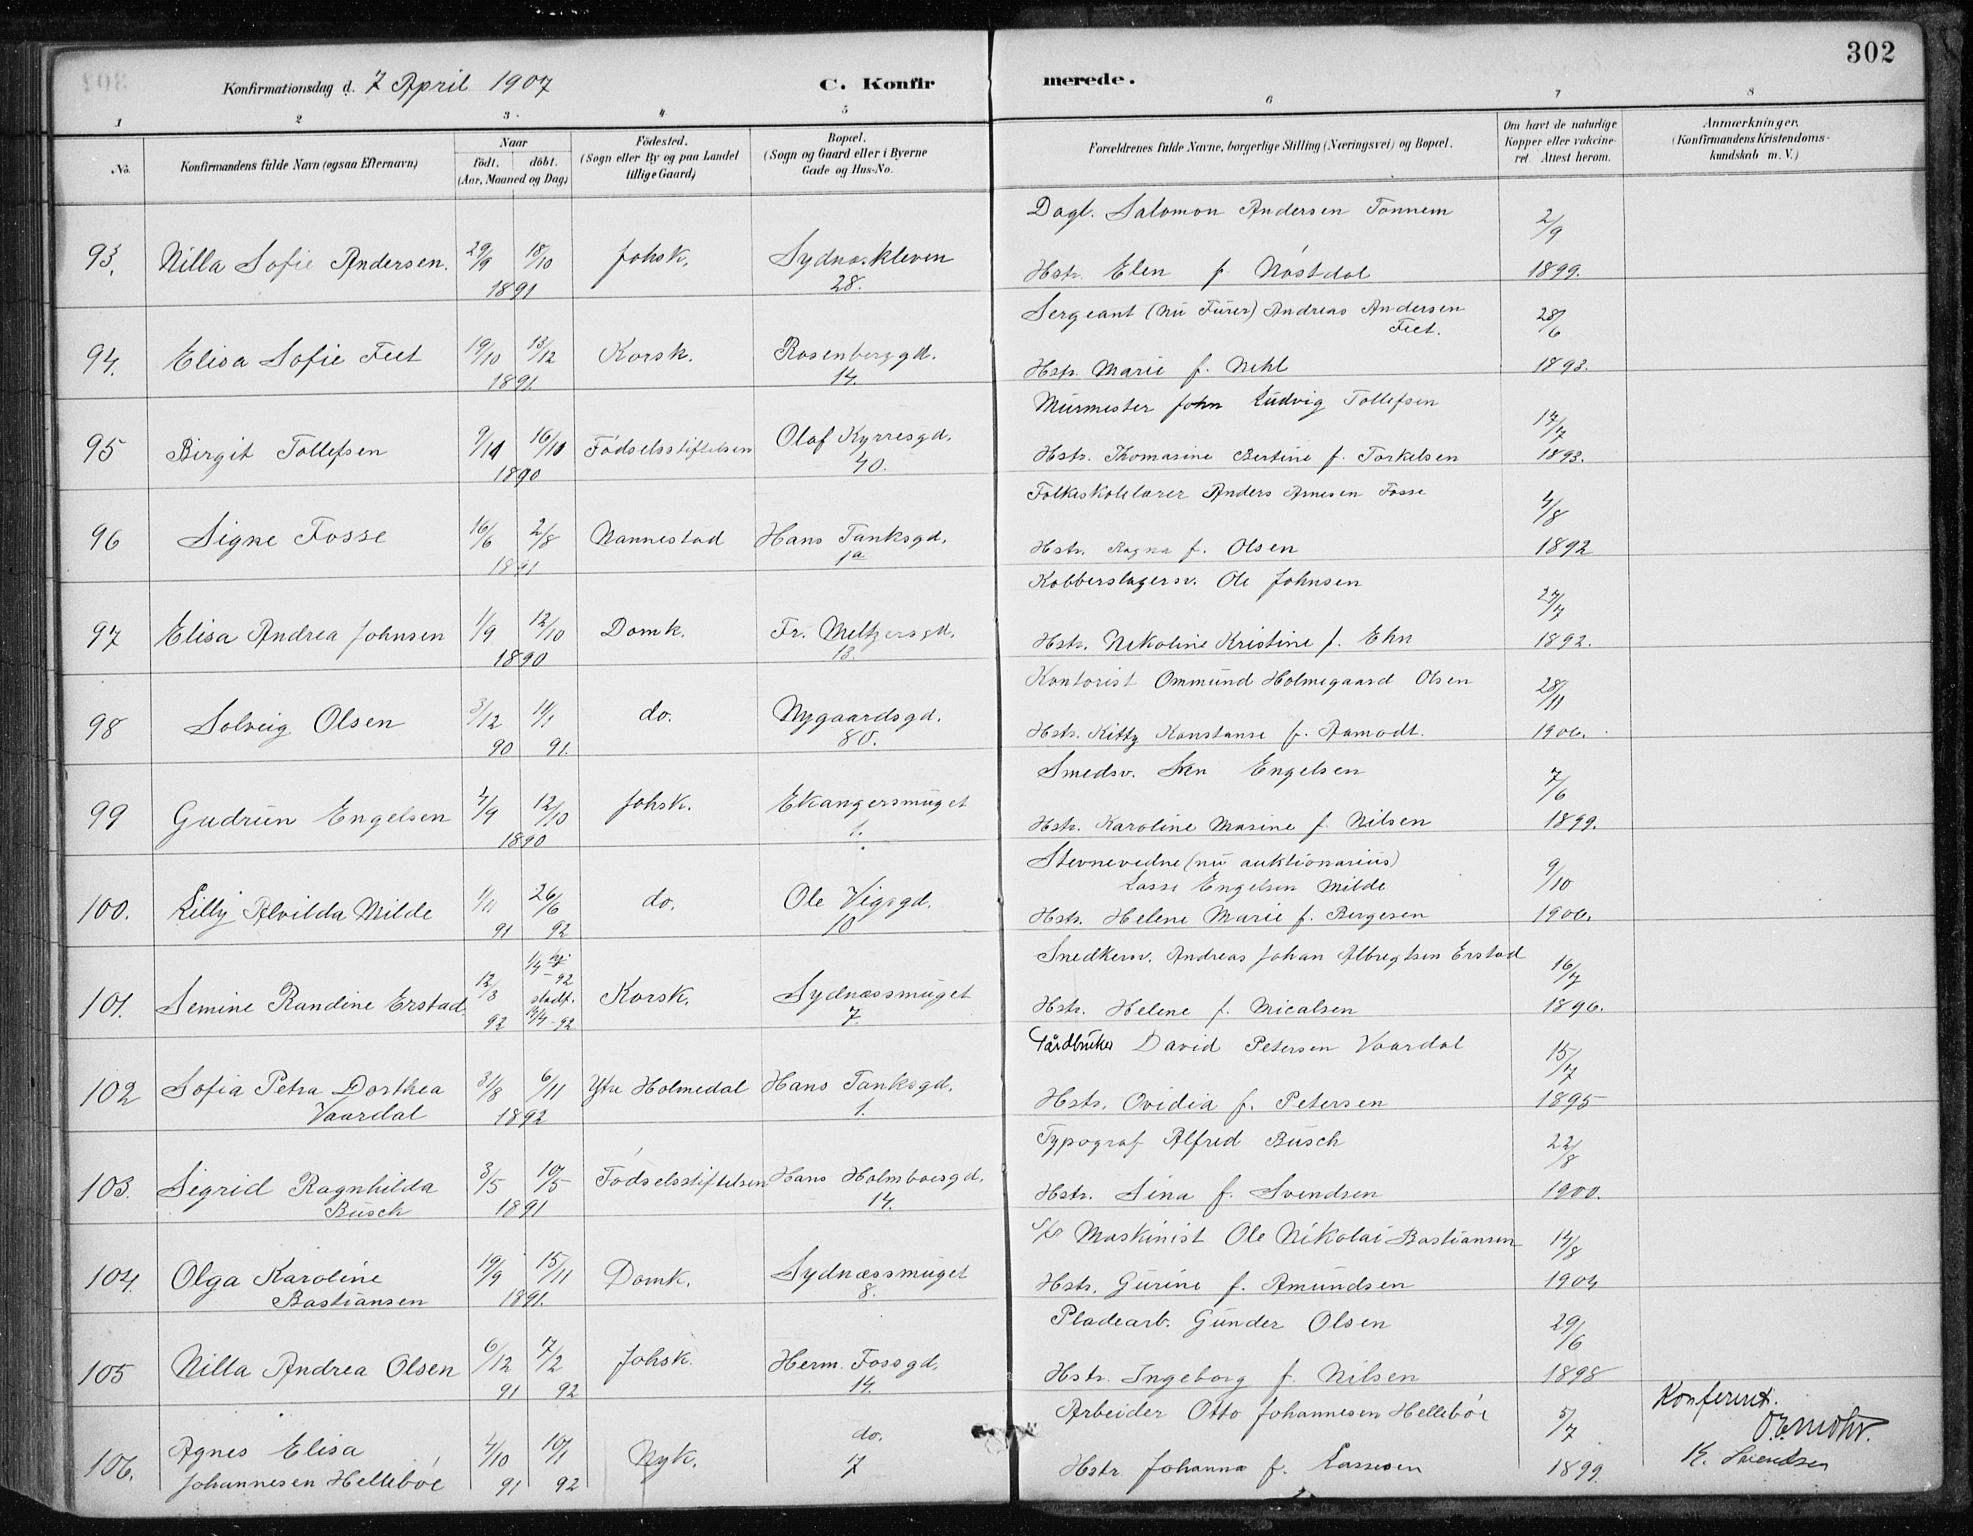 302
Konfirmationsdag d. 7 April 1907
C. Konfirmerede.
1 2 3 4 5 6 7 8
No.
Konfirmandens fulde Navn (ogsaa Efternavn)
Naar
født. døbt.
(Aar, Maaned og Dag)
Fødested.
(Sogn eller By og paa Landet
tillige Gaard)
Bopæl.
(Sogn og Gaard eller i Byerne
Gade og Hus-No.
Forældrenes fulde Navne, borgerlige Stilling (Næringsvei) og Bopæl.
Om havt de naturlige
Kopper eller vakcine-
ret. Attest herom.
Anmærkninger.
(Konfirmandens Kristendoms-
kundskab m. V.)
93. Nilla Sofie Andersen. 29/9 18/10 1891 Johsk. Sydnæskleven 28.
Dagl. Salomon Andersen Tonnem
Hstr. Elen f. Nøstdal
2/9 1899.
94. Elisa Sofie Feet 19/10 13/12 1891. Korsk. Rosenberggd. 14.
Sergeant (nu Furer) Andreas Andersen
Feet.
Hstr. Marie f. Nehl
28/6 1893.
95 Birgit Tollefsen 9/11 16/10 1890 Fødselsstiftelsen Olaf Kyrresgd. 40.
Murmester John Ludvig Tollefsen
Hstr. Thomasine Bertine f. Torkelsen
17/7 1893.
96 Signe Fosse 16/6 2/8 1891 Nannestad Hans Tanksgd. 1a
Folkeskolelærer Anders Arnesen Fosse
Hstr. Ragna f. Olsen
4/8 1892
97 Elisa Andrea Johnsen 1/9 12/10 1890 Domk. Fr. Meltzersgd. 13.
Kobberslagersv. Ole Johnsen
Hstr. Nikoline Kristine f. Ehn
27/7 1892.
98 Solveig Olsen 3/12 90 11/1 91. do. Nygaardsgd. 80.
Kontorist Ommund Holmegaard Olsen
Hstr. Kitty Konstanse f. Aamodt.
28/11 1906.
99 Gudrun Engelsen 4/9 12/10 1890 Johsk. Ekangersmuget 1.
Smedsv. Engelsen
Hstr. Karoline Masine f. Nilsen
7/6 1899.
100. Lilly Alvilda Milde 1/11 91 26/6 92 do. Ole Vigsgd. 10
Stevnevidne (nu auktionarius)
Lasse Engelsen Milde
Hstr. Helene Marie f. Bergesen
9/10 1906.
101. Semine Randine Erstad 12/3 92 1/4 - 92 stadf. 13/4 - 92 Korsk. Sydnæssmuget 7.
Snedkersv. Andreas Johan Albregtsen Erstad
Hstr. Helene f. Micalsen
16/7 1896.
102 Sofia Petra Dorthea
Vaardal 31/8 6/11 1892 Ytre Holmedal Hans Tanksgd. 1.
Gårdbruker David Petersen Vaardal
Hstr. Ovidia f. Petersen
15/7 1895
103. Sigrid Ragnhilda
Busch 3/5 10/5 1891 Fødselsstiftelsen Hans Holmboesgd. 14.
Typograf Alfred Busch
Hstr. Sina f. Svendsen
22/8 1900.
104. Olga Karoline
Bastiansen 19/9 15/11 1891. Domk. Sydnæssmuget 8.
Maskinist Ole Nikolai Bastiansen
Hstr. Gurine f. Amundsen
14/8 1904
105 Nilla Andrea Olsen 6/12 91 7/2 92 Johsk. Herm. Fossgd. 14.
Pladearb. Gunder Olsen
Hstr. Ingeborg f. Nilsen
29/6 1898
106. Agnes Elisa
Johannesen Hellebøe 4/10 91 10/1 92 Nyk. do. 7
Arbeider Otto Johannesen Hellebøe
Hstr. Johanna f. Lassesen
5/7 1899
Konferert.
O. E. Mohr.
K. Svendsen